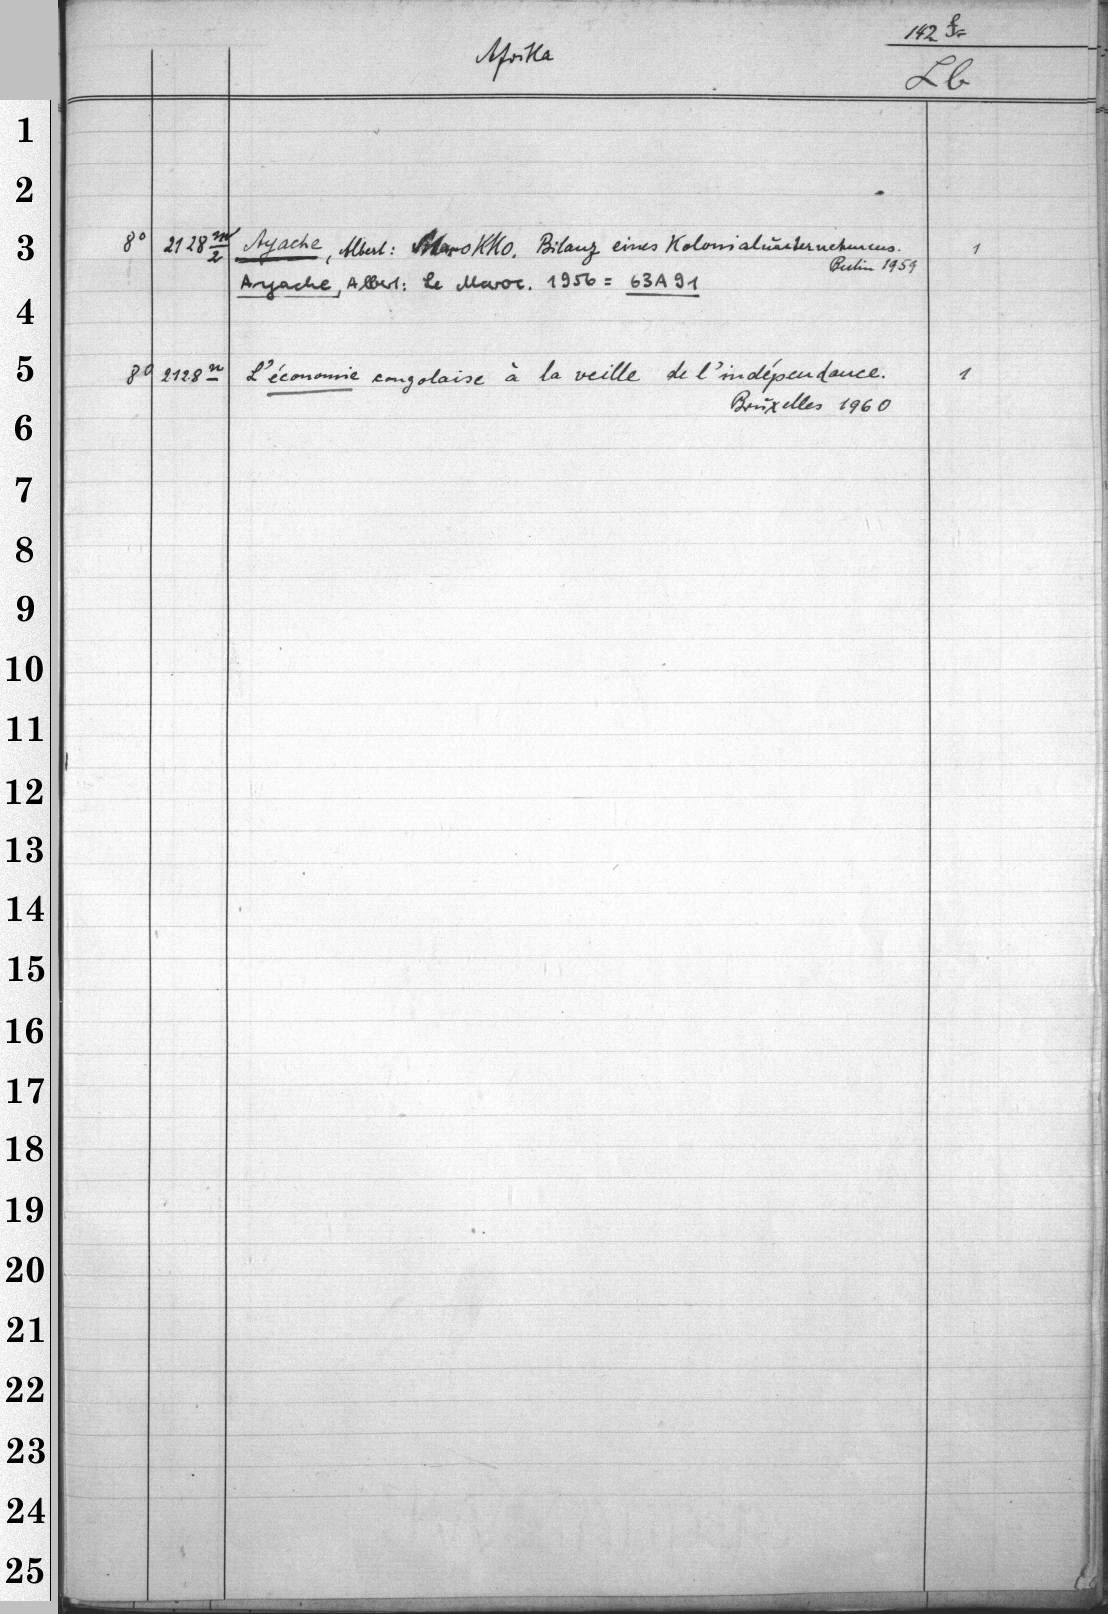 142 f
Afrika
Lb
1
2
3
8° 2128 m/2 Ayache, Albert: Marokko. Bilanz eines Kolonialunternehmens. 1
Berlin 1959
Ayache, Albert: Le Maroc. 1956 = 63A91
4
5
8° 2128 n L'économie congolaise à la veille de l'indépendance. 1
Bruxelles 1960
6
7
8
9
10
11
12
13
14
15
16
17
18
19
20
21
22
23
24
25